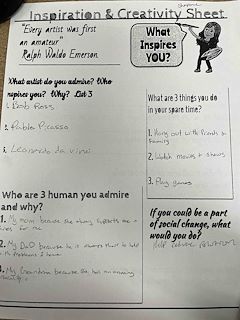 Inspiration & Creativity Sheet
"Every artist was first
an amateur"
Ralph Waldo Emerson
What
Inspires
YOU?
What artist do you admire? Who
nspires you? Why? List 3
1. Bob Ross
Pablo Picasso
3. Leonardo da vinci
What are 3 things you do
in your spare time?
1. Hang out with friends &
Family
2. Watch movies & shows
3. Play games
Who are 3 human you admire
and why?
1. My mom because she always supports me
for me
2. My Dad because he is always there to help
with Problems I have
3. My Grandma because she has an amazing
If you could be a part
of social change, what
would you do?
Help reduce pollution